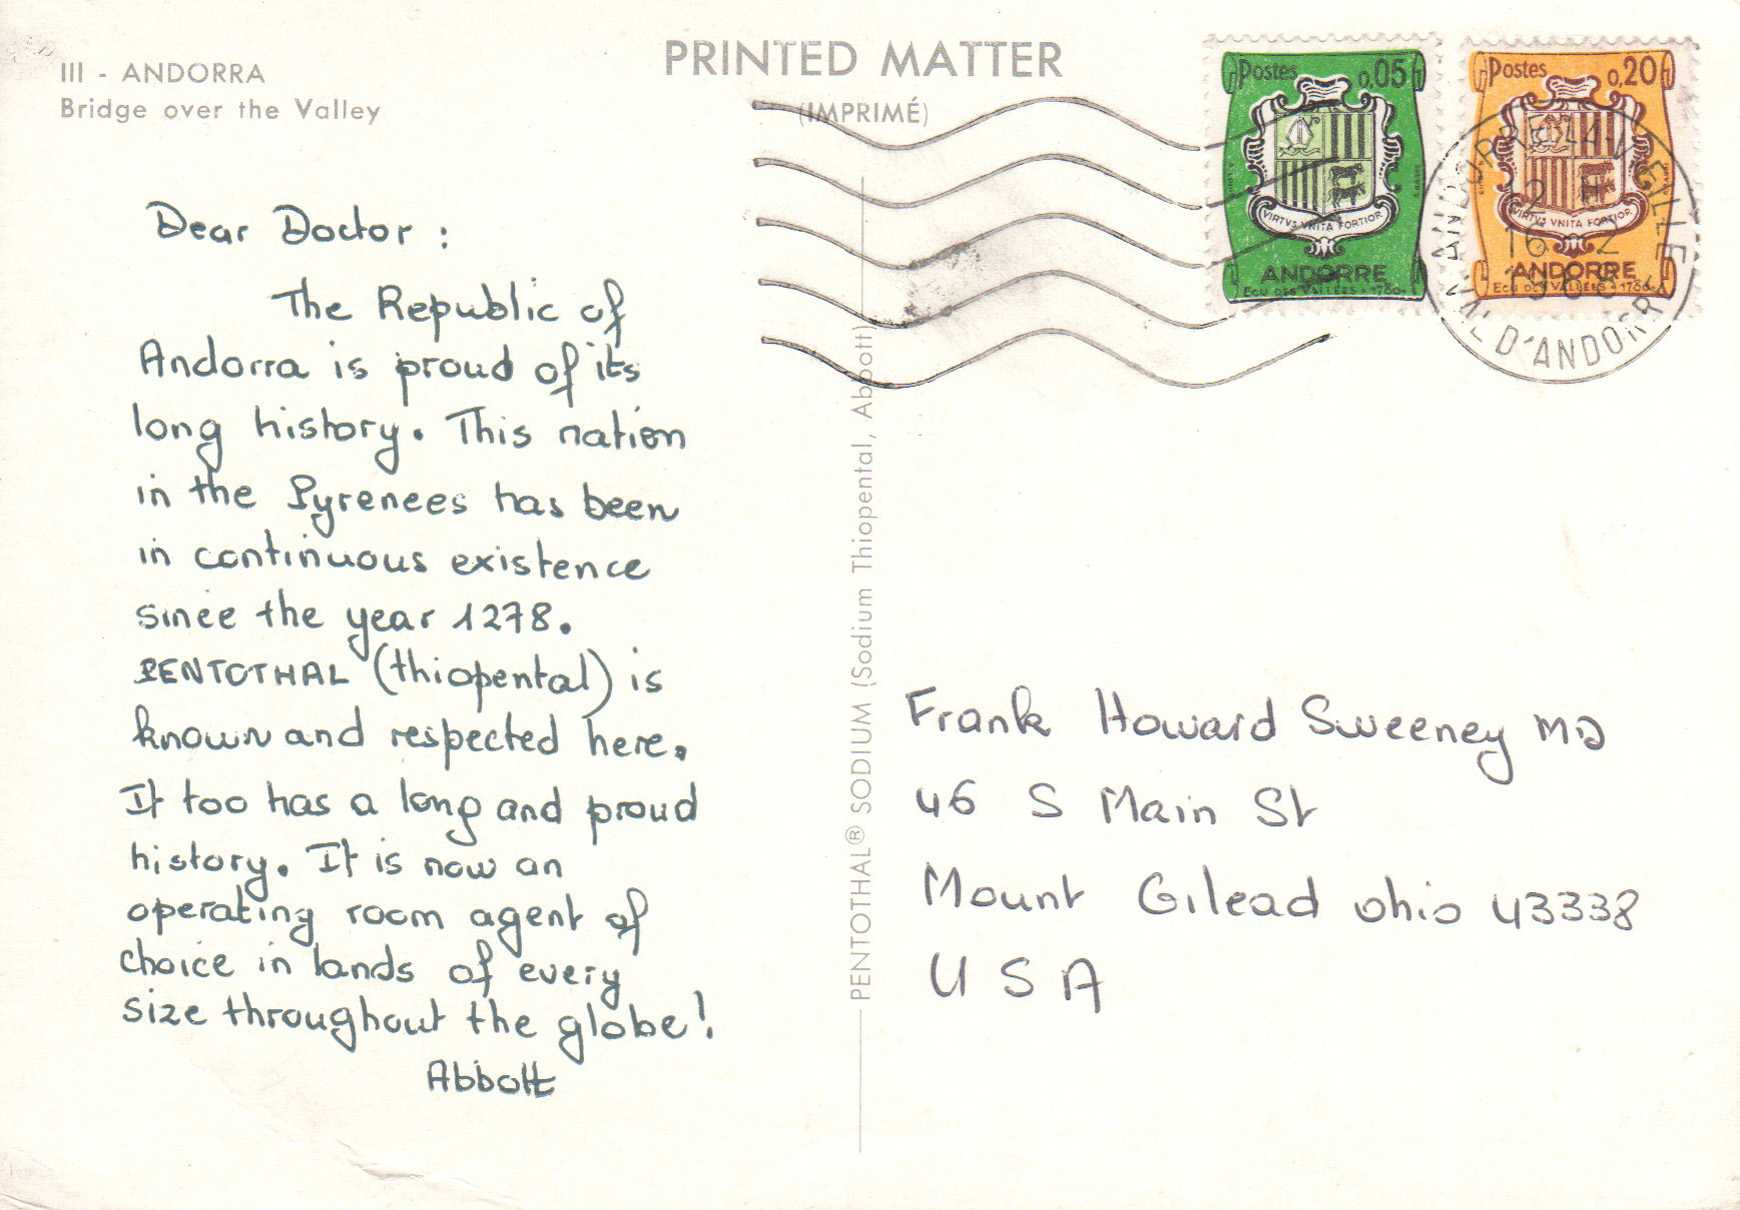 III - ANDORRA
Bridge over the Valley
PRINTED MATTER
(IMPRIMÉ)
Dear Doctor :
The Republic of
Andorra is proud of its
long history. This nation
in the Pyrenees has been
in continuous existence
since the year 1278.
PENTOTHAL (thiopental) is
known and respected here.
It too has a long and proud
history. It is now an
operating room agent of
choice in lands of every
size throughout the globe!
Abbott
PENTOTHAL® SODIUM (Sodium Thiopental, Abbott)
Postes 0,05
VIRTVS VNITA FORTIOR
ANDORRE
ECU DES VALLÉES • 1780
Postes 0,20
VIRTVS VNITA FORTIOR
ANDORRE
ECU DES VALLÉES • 1780
ANDORRE LA VIEILLE
VAL D'ANDORRE
16 2
Frank Howard Sweeney MD
46 S Main St
Mount Gilead ohio 43338
U S A